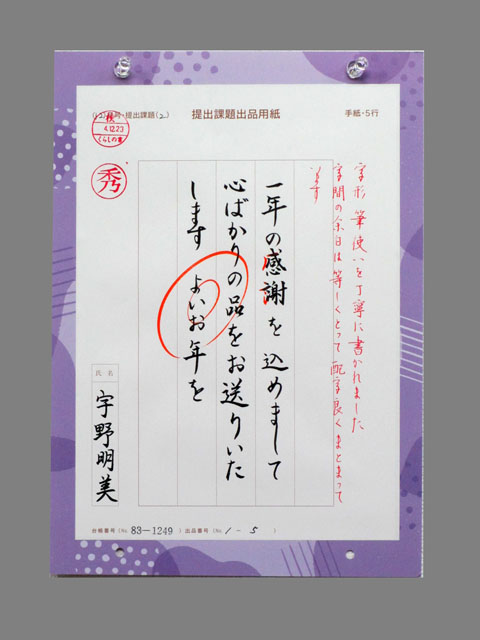 提出課題出品用紙
手紙・5行
提出課題(2)
検
4.12.23
くらしの書
秀
字形 筆使いを丁寧に書かれました
字間の余白は等しくとって 配字良くまとまって
います
一年の感謝を込めまして
心ばかりの品をお送りいた
します よいお年を
氏名
宇野明美
台帳番号(No. 83-1249 )出品番号(No. 1-5 )